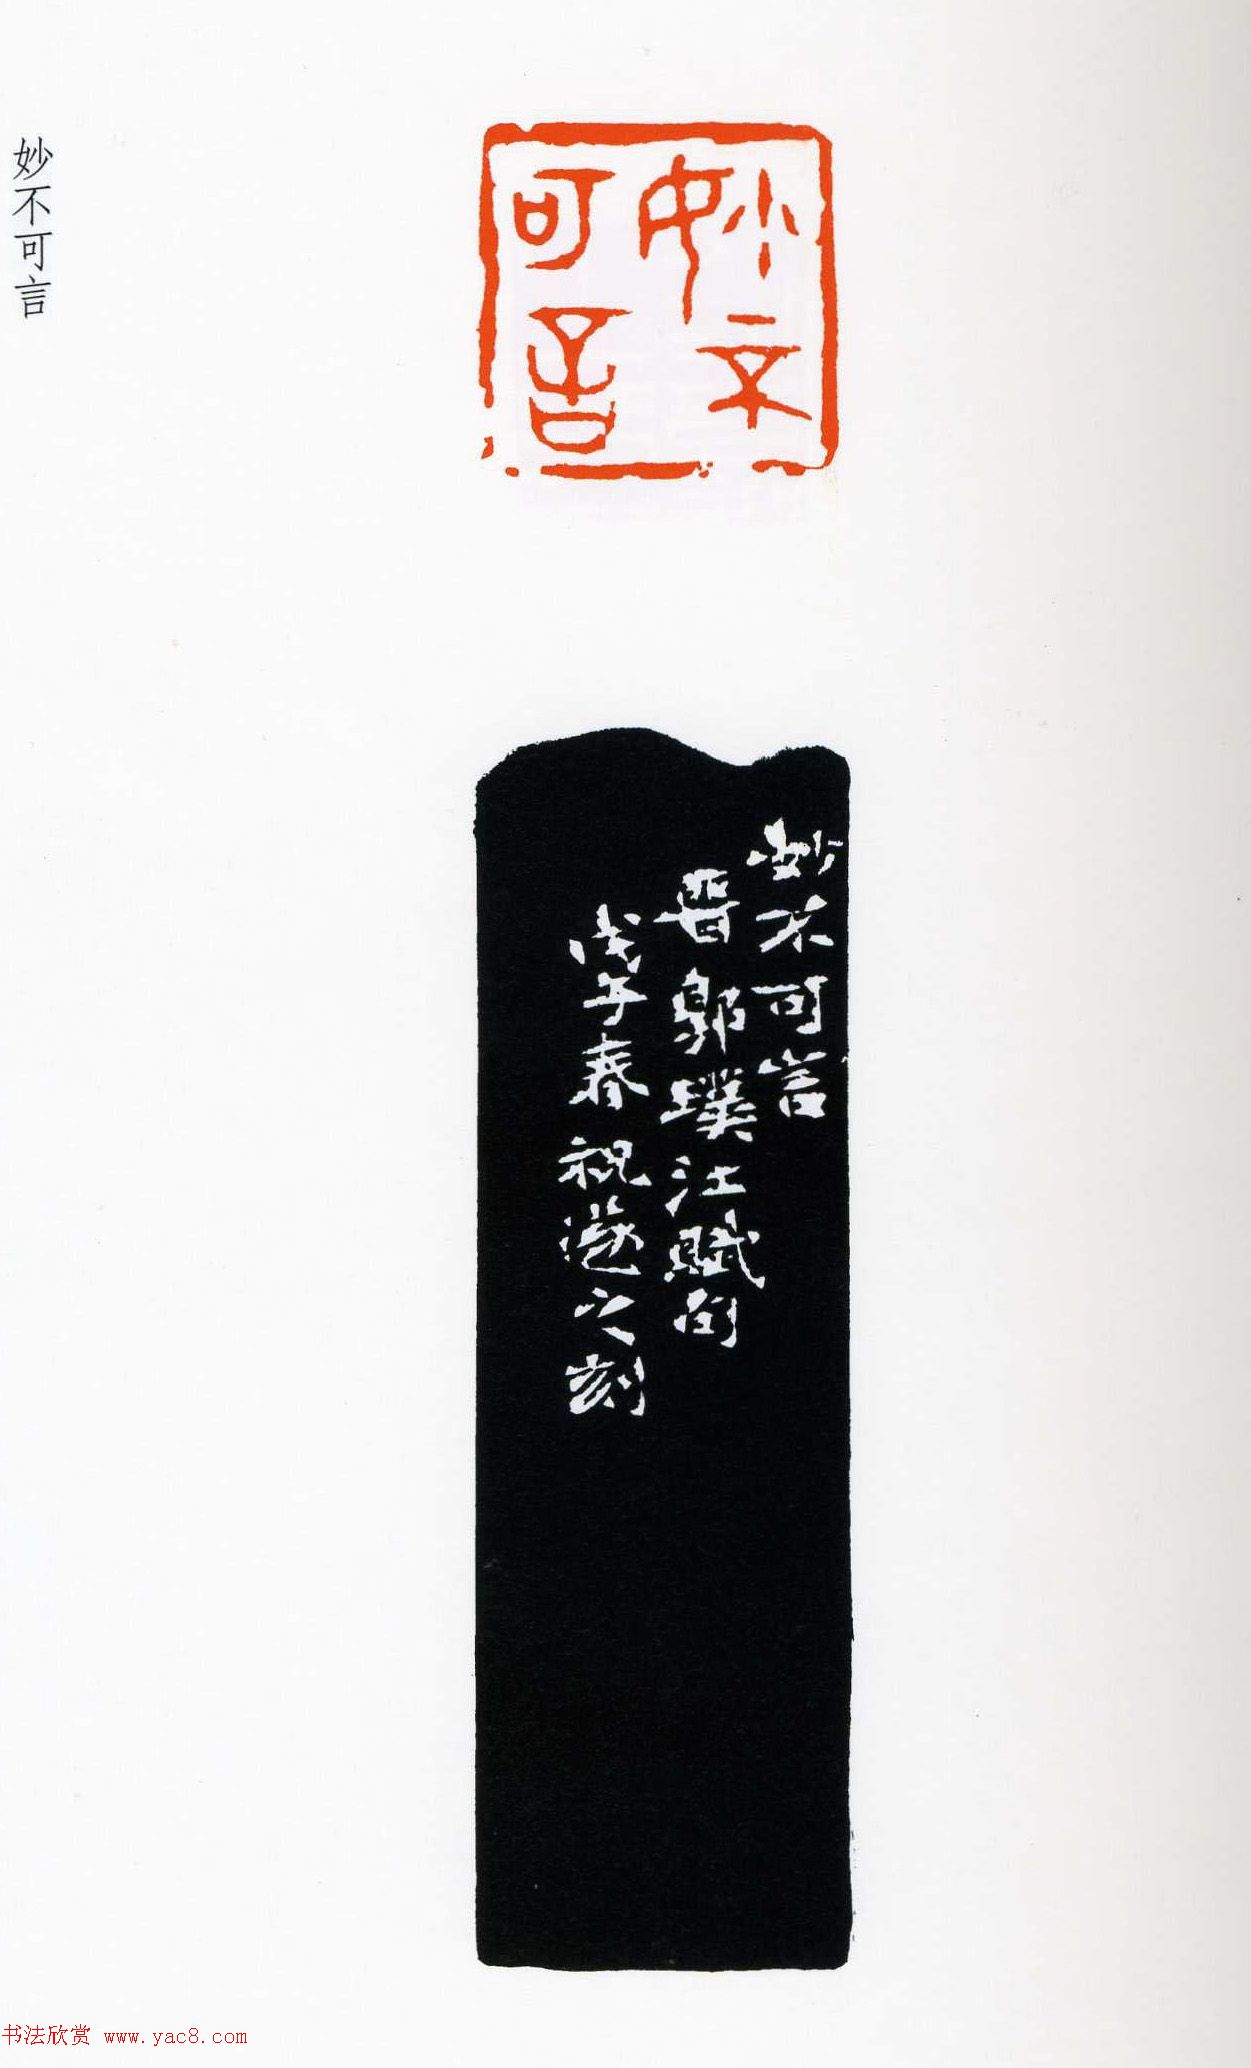 妙不可言
妙不
可言
妙不可言
晋郭璞江赋句
戊子春祝遂之刻
书法欣赏 www.yac8.com